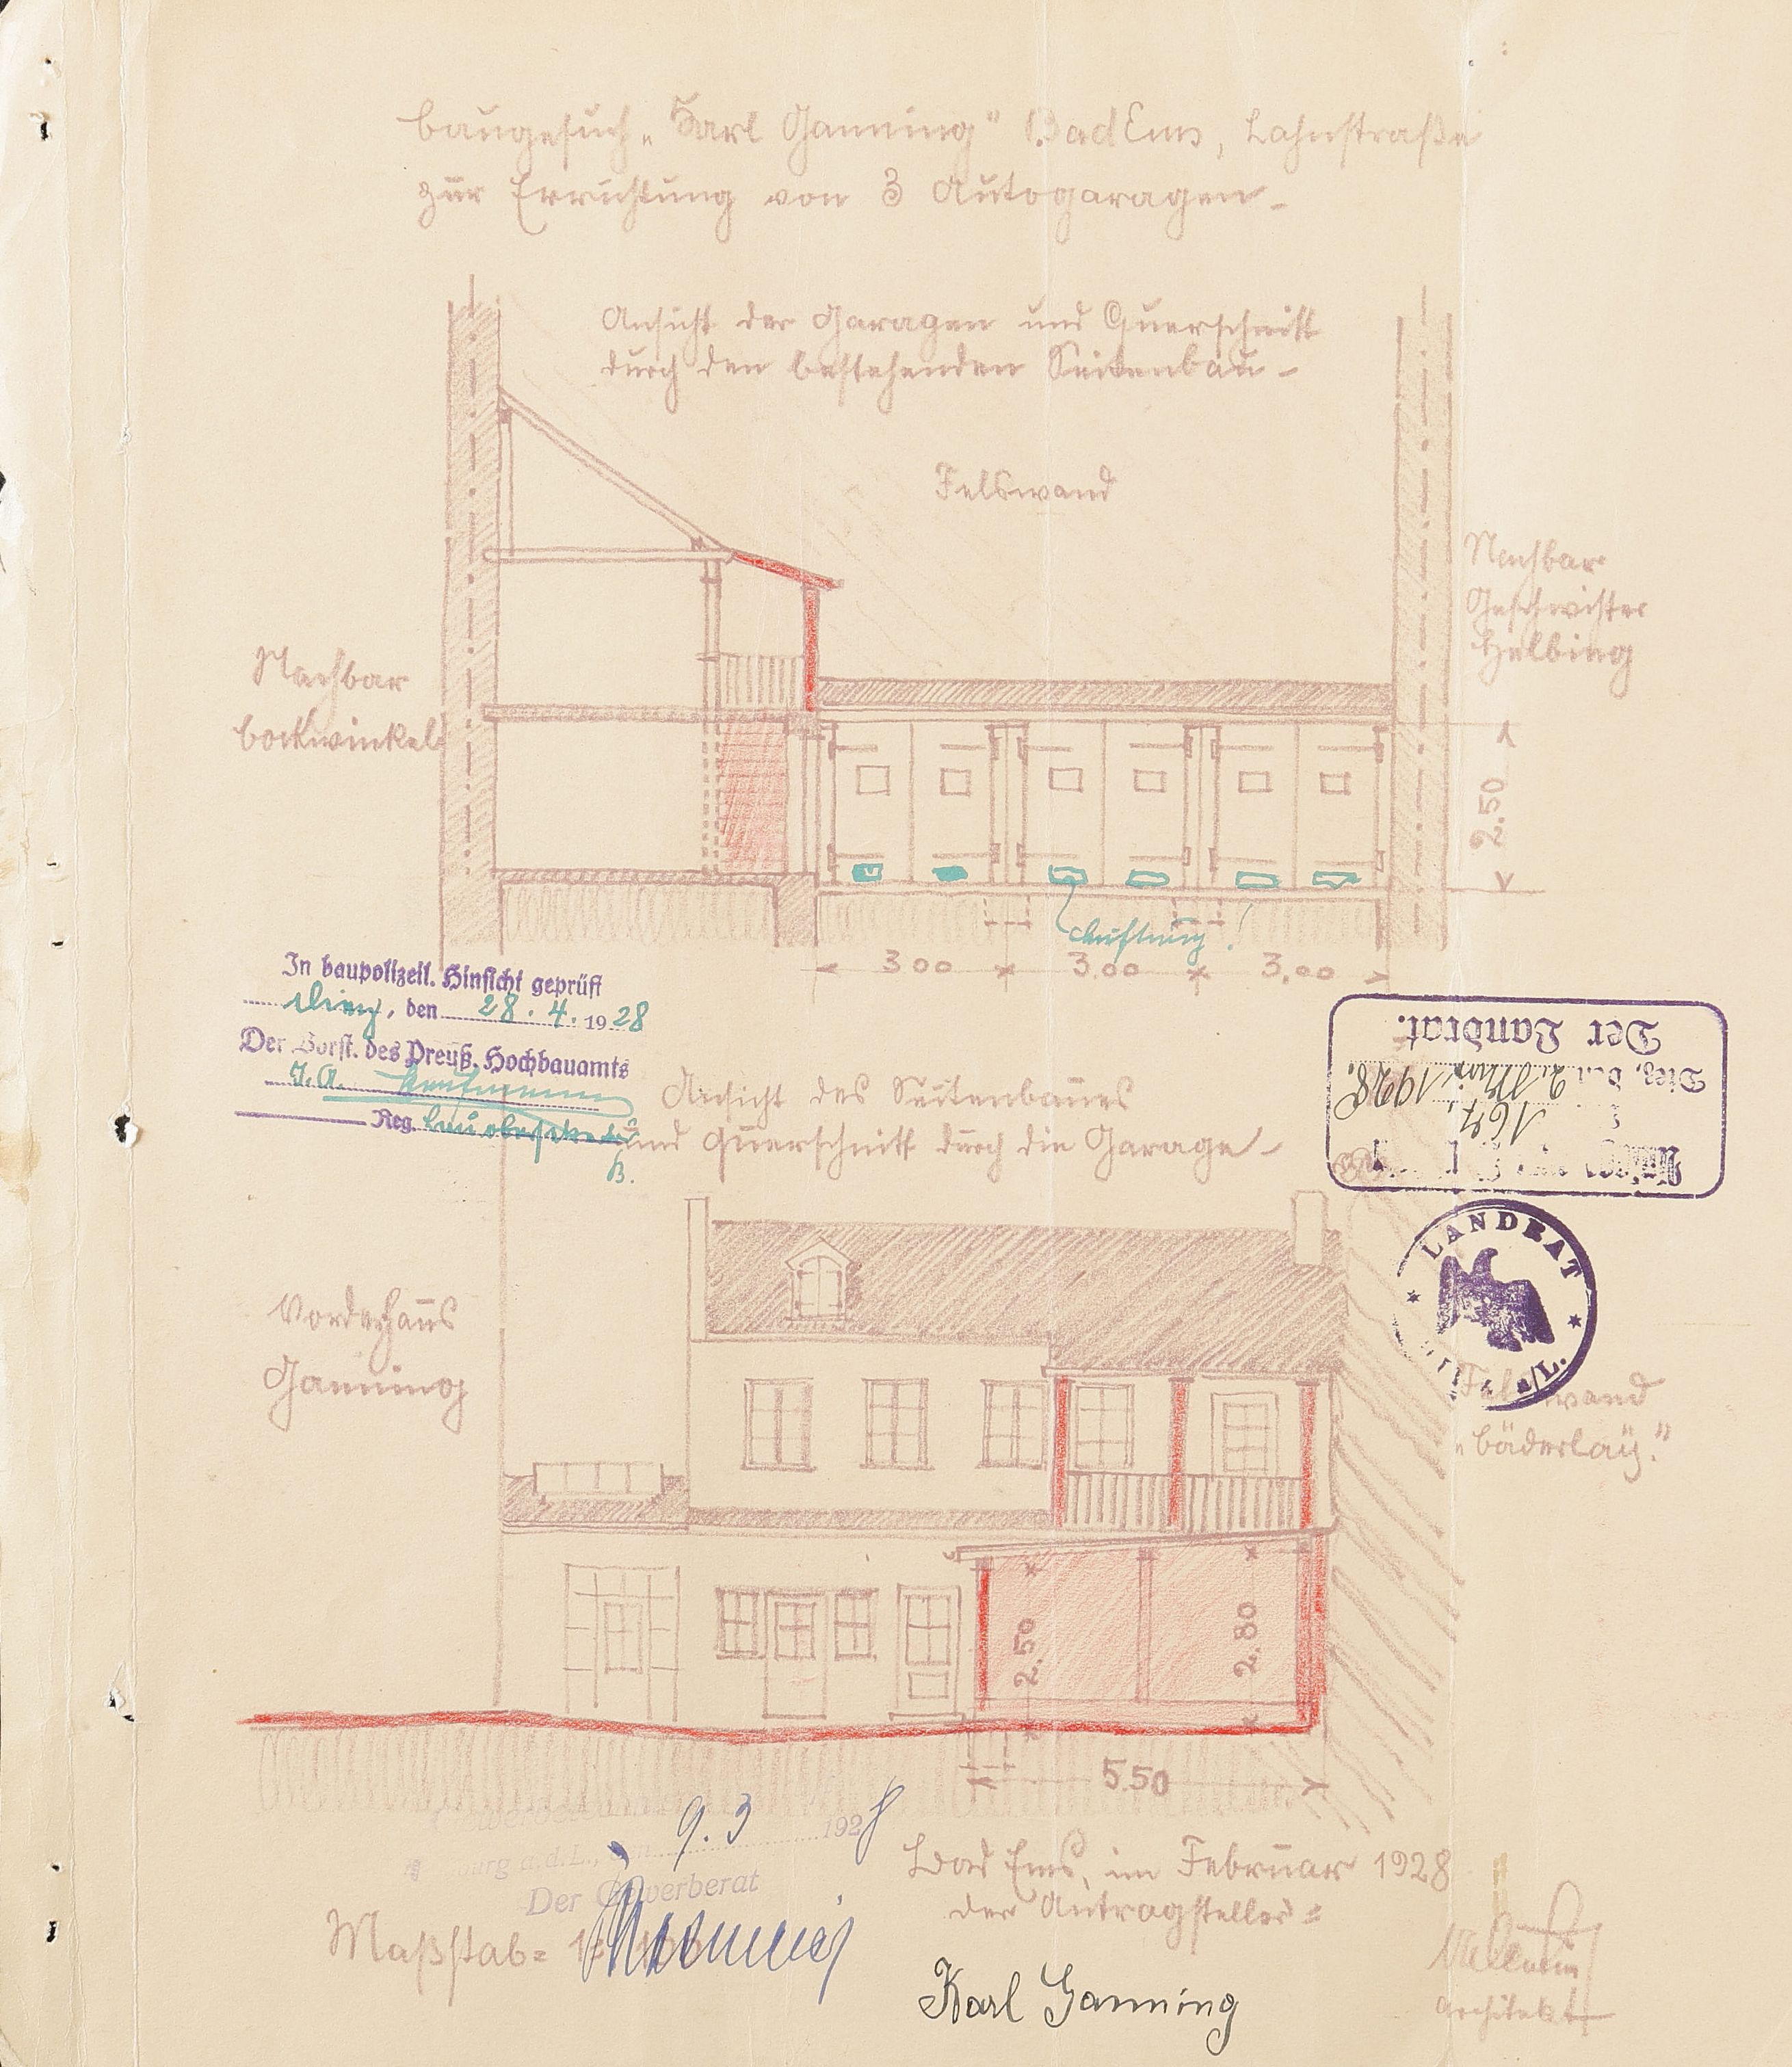 Baugesuch „Karl Ganning" Bad Ems, Lahnstraße
zur Errichtung von 3 Autogaragen-
Ansicht der Garagen und Querschnitt
durch den bestehenden Seitenbau-
Felswand
Nachbar
Geschwister
Helbing
Nachbar
Bockwinkel
2.50
Lüftung!
3.00 3.00 3.00
In baupolizeil. Hinsicht geprüft
Diez, den 28.4.1928
Der Vorst. des Preuß. Hochbauamts
I.A.
Reg.
Der Landrat.
Diez, den 2. Mai 1928.
167
LANDRAT
a/L.
Ansicht des Seitenbaues
und Querschnitt durch die Garage-
Vorderhaus
Ganning
Felswand
„Bäderlay."
2.50
2.80
5.50
9.3 1928
burg a.d.L., den
Der Gewerberat
Maßstab=
Bad Ems, im Februar 1928
der Antragsteller=
Karl Ganning
Valentin
Architekt